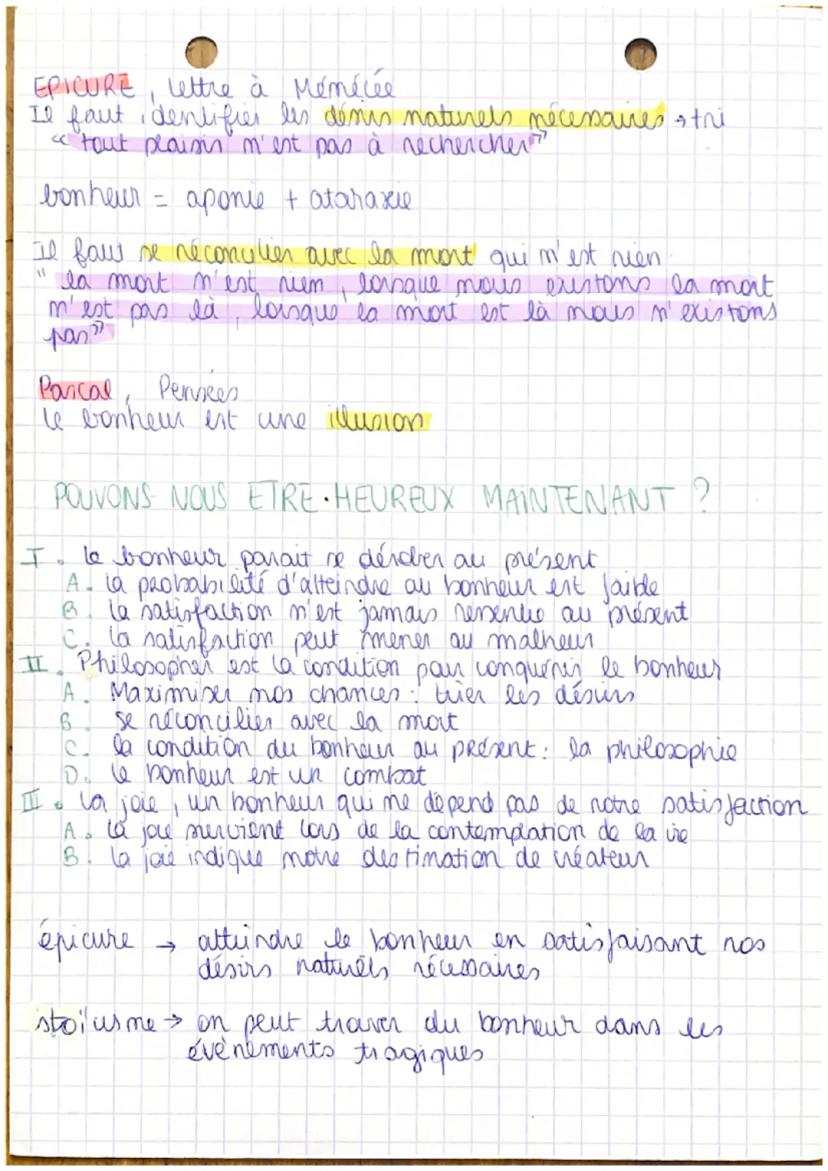 EPICURE, lettre à Ménécée
Il faut identifier les désirs naturels nécessaires → tri
"tout plaisir n'est pas à rechercher"
bonheur = aponie + ataraxie
Il faut se réconcilier avec la mort qui n'est rien.
"la mort n'est rien, lorsque nous existons la mort
n'est pas là, lorsque la mort est là nous n'existons
pas"
Pascal, Pensées
le bonheur est une illusion
POUVONS NOUS ETRE HEUREUX MAINTENANT ?
I. le bonheur parait se dérober au présent
A. la probabilité d'atteindre au bonheur est faible
B. la satisfaction n'est jamais ressentie au présent
C. la satisfaction peut mener au malheur
II. Philosopher est la condition pour conquérir le bonheur
A. Maximiser nos chances : trier les désirs
B. se réconcilier avec la mort
C. la condition du bonheur au présent : la philosophie
D. le bonheur est un combat
III. La joie, un bonheur qui ne dépend pas de notre satisfaction
A. la joie survient lors de la contemplation de la vie
B. la joie indique notre destination de créateur
épicure → atteindre le bonheur en satisfaisant nos
désirs naturels nécessaires
stoïcisme → on peut trouver du bonheur dans les
évènements tragiques